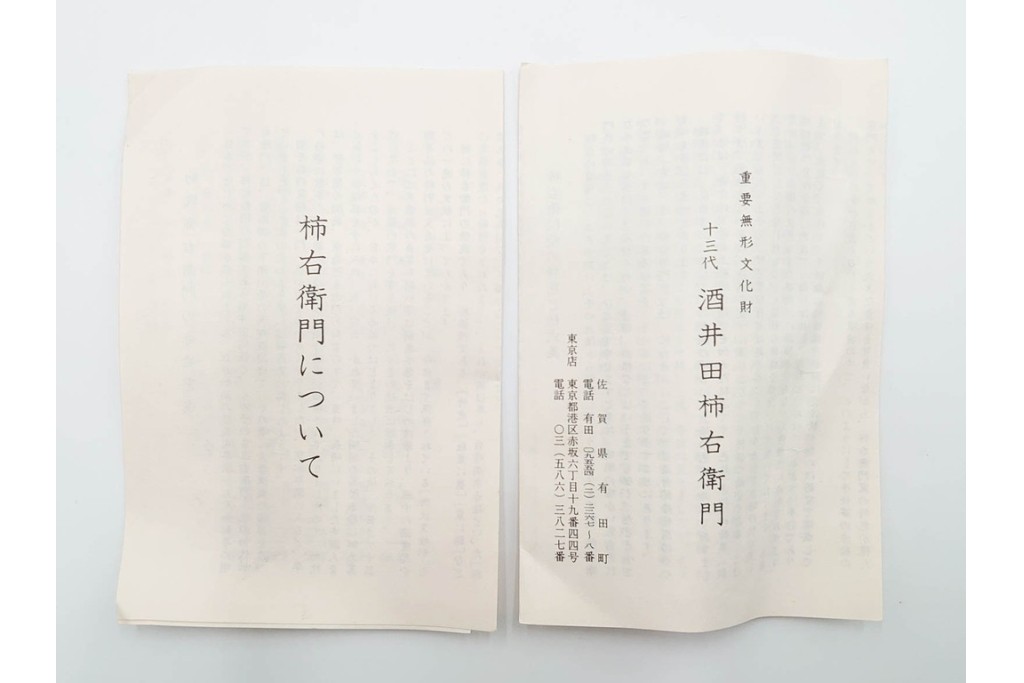 柿右衛門について
重要無形文化財
十三代 酒井田柿右衛門
佐賀県有田町
電話 有田 〜八番
東京店 東京都港区赤坂六丁目十九番四四号
電話 〇三(五八六)三八二七番